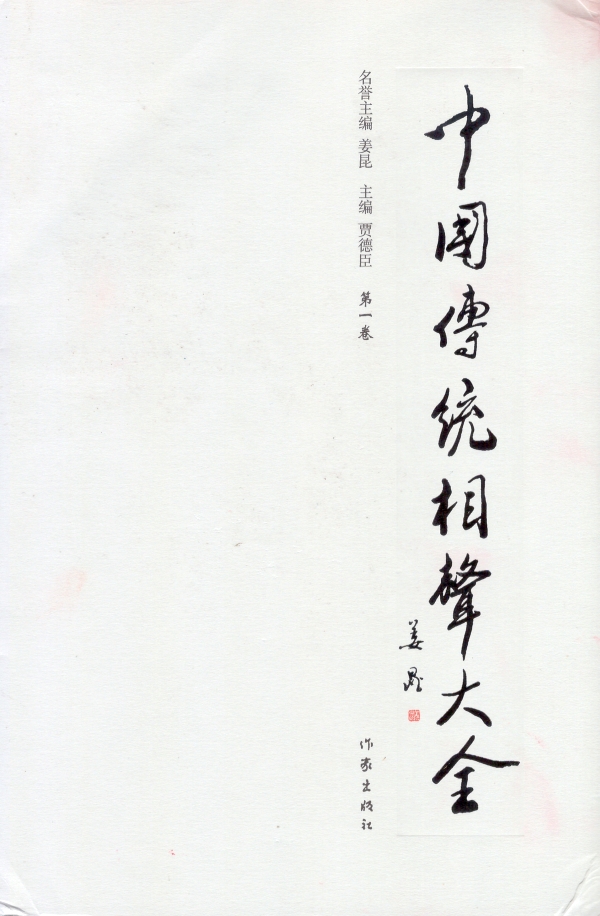 中國傳統相聲大全
姜昆
名誉主编 姜昆 主编 贾德臣 第一卷
作家出版社